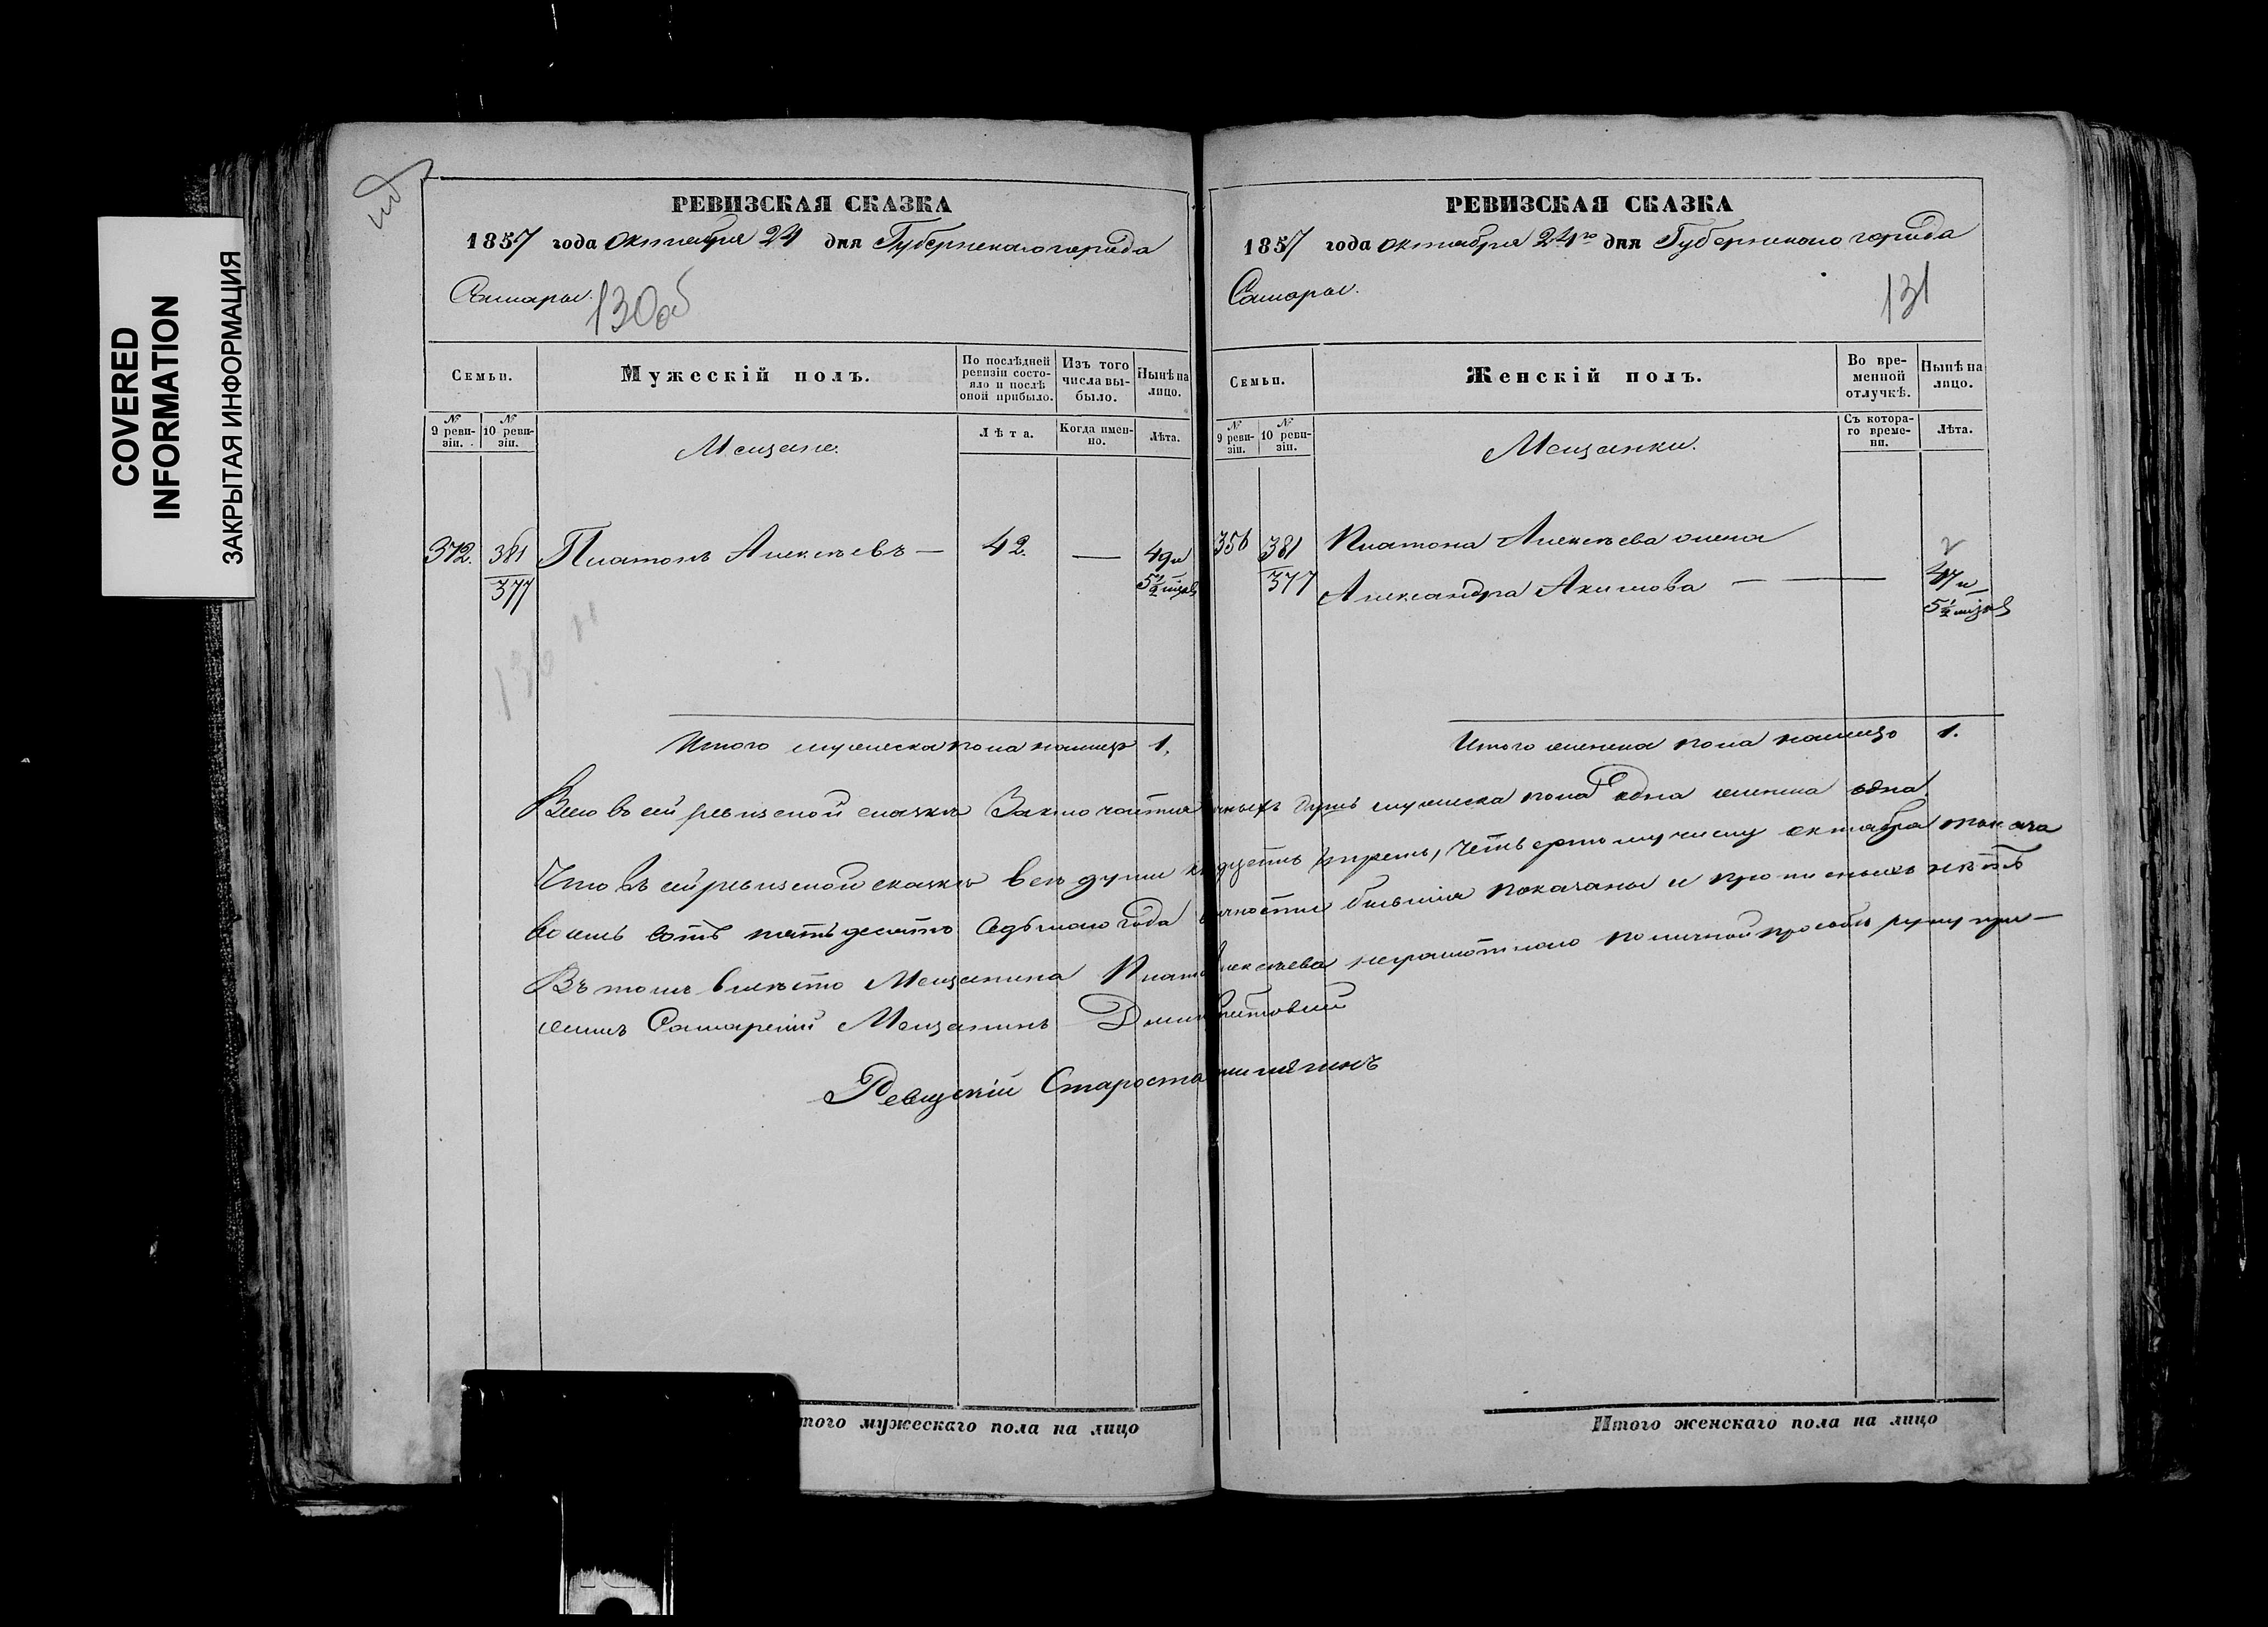 COVERED
INFORMATION
ЗАКРЫТАЯ ИНФОРМАЦИЯ
РЕВИЗСКАЯ СКАЗКА
1857 года Октября 24 дня Губернскаго города
Самары.
130об
Семьи.
Мужескій полъ.
По послѣдней ревизіи состояло и послѣ оной прибыло.
Изъ того числа выбыло.
Нынѣ на лицо.
№ 9 ревизіи.
№ 10 ревизіи.
Мещане.
Лѣта.
Когда именно.
Лѣта.
372. 381 Платонъ Алексѣевъ — 42. — 49 и
377 5 1/2 мѣсяц
Итого мужеска пола налицо 1.
РЕВИЗСКАЯ СКАЗКА
1857 года Октября 24го дня Губернскаго города
Самары.
131
Семьи.
Женскій полъ.
Во временной отлучкѣ.
Нынѣ на лицо.
№ 9 ревизіи.
№ 10 ревизіи.
Мещанки.
Съ котораго времени.
Лѣта.
356 381 Платона Алексѣева жена
377 Александра Акимова — — 47 и
5 1/2 мѣсяц
Итого женска пола налицо 1.
Всего въ сей ревизской сказкѣ Заключается душъ мужеска пола Одна женска одна.
Что въ сей ревизской сказкѣ всѣ души къ четвертому числу октября
восемь сотъ пятьдесятъ седьмаго года бывшія показаны и прописныхъ нѣтъ
Въ томъ вмѣсто Мещанина Алексѣева неграмотнаго поличной прозьбѣ руку при—
ложилъ Самарскій Мещанинъ
Ревизскій Староста
того мужескаго пола на лицо
Итого женскаго пола на лицо